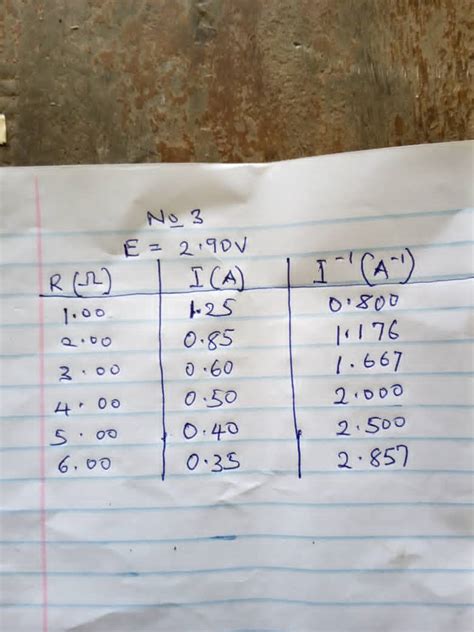 No 3
E = 2.90V
R (Ω) I (A) I⁻¹ (A⁻¹)
1.00 1.25 0.800
2.00 0.85 1.176
3.00 0.60 1.667
4.00 0.50 2.000
5.00 0.40 2.500
6.00 0.35 2.857